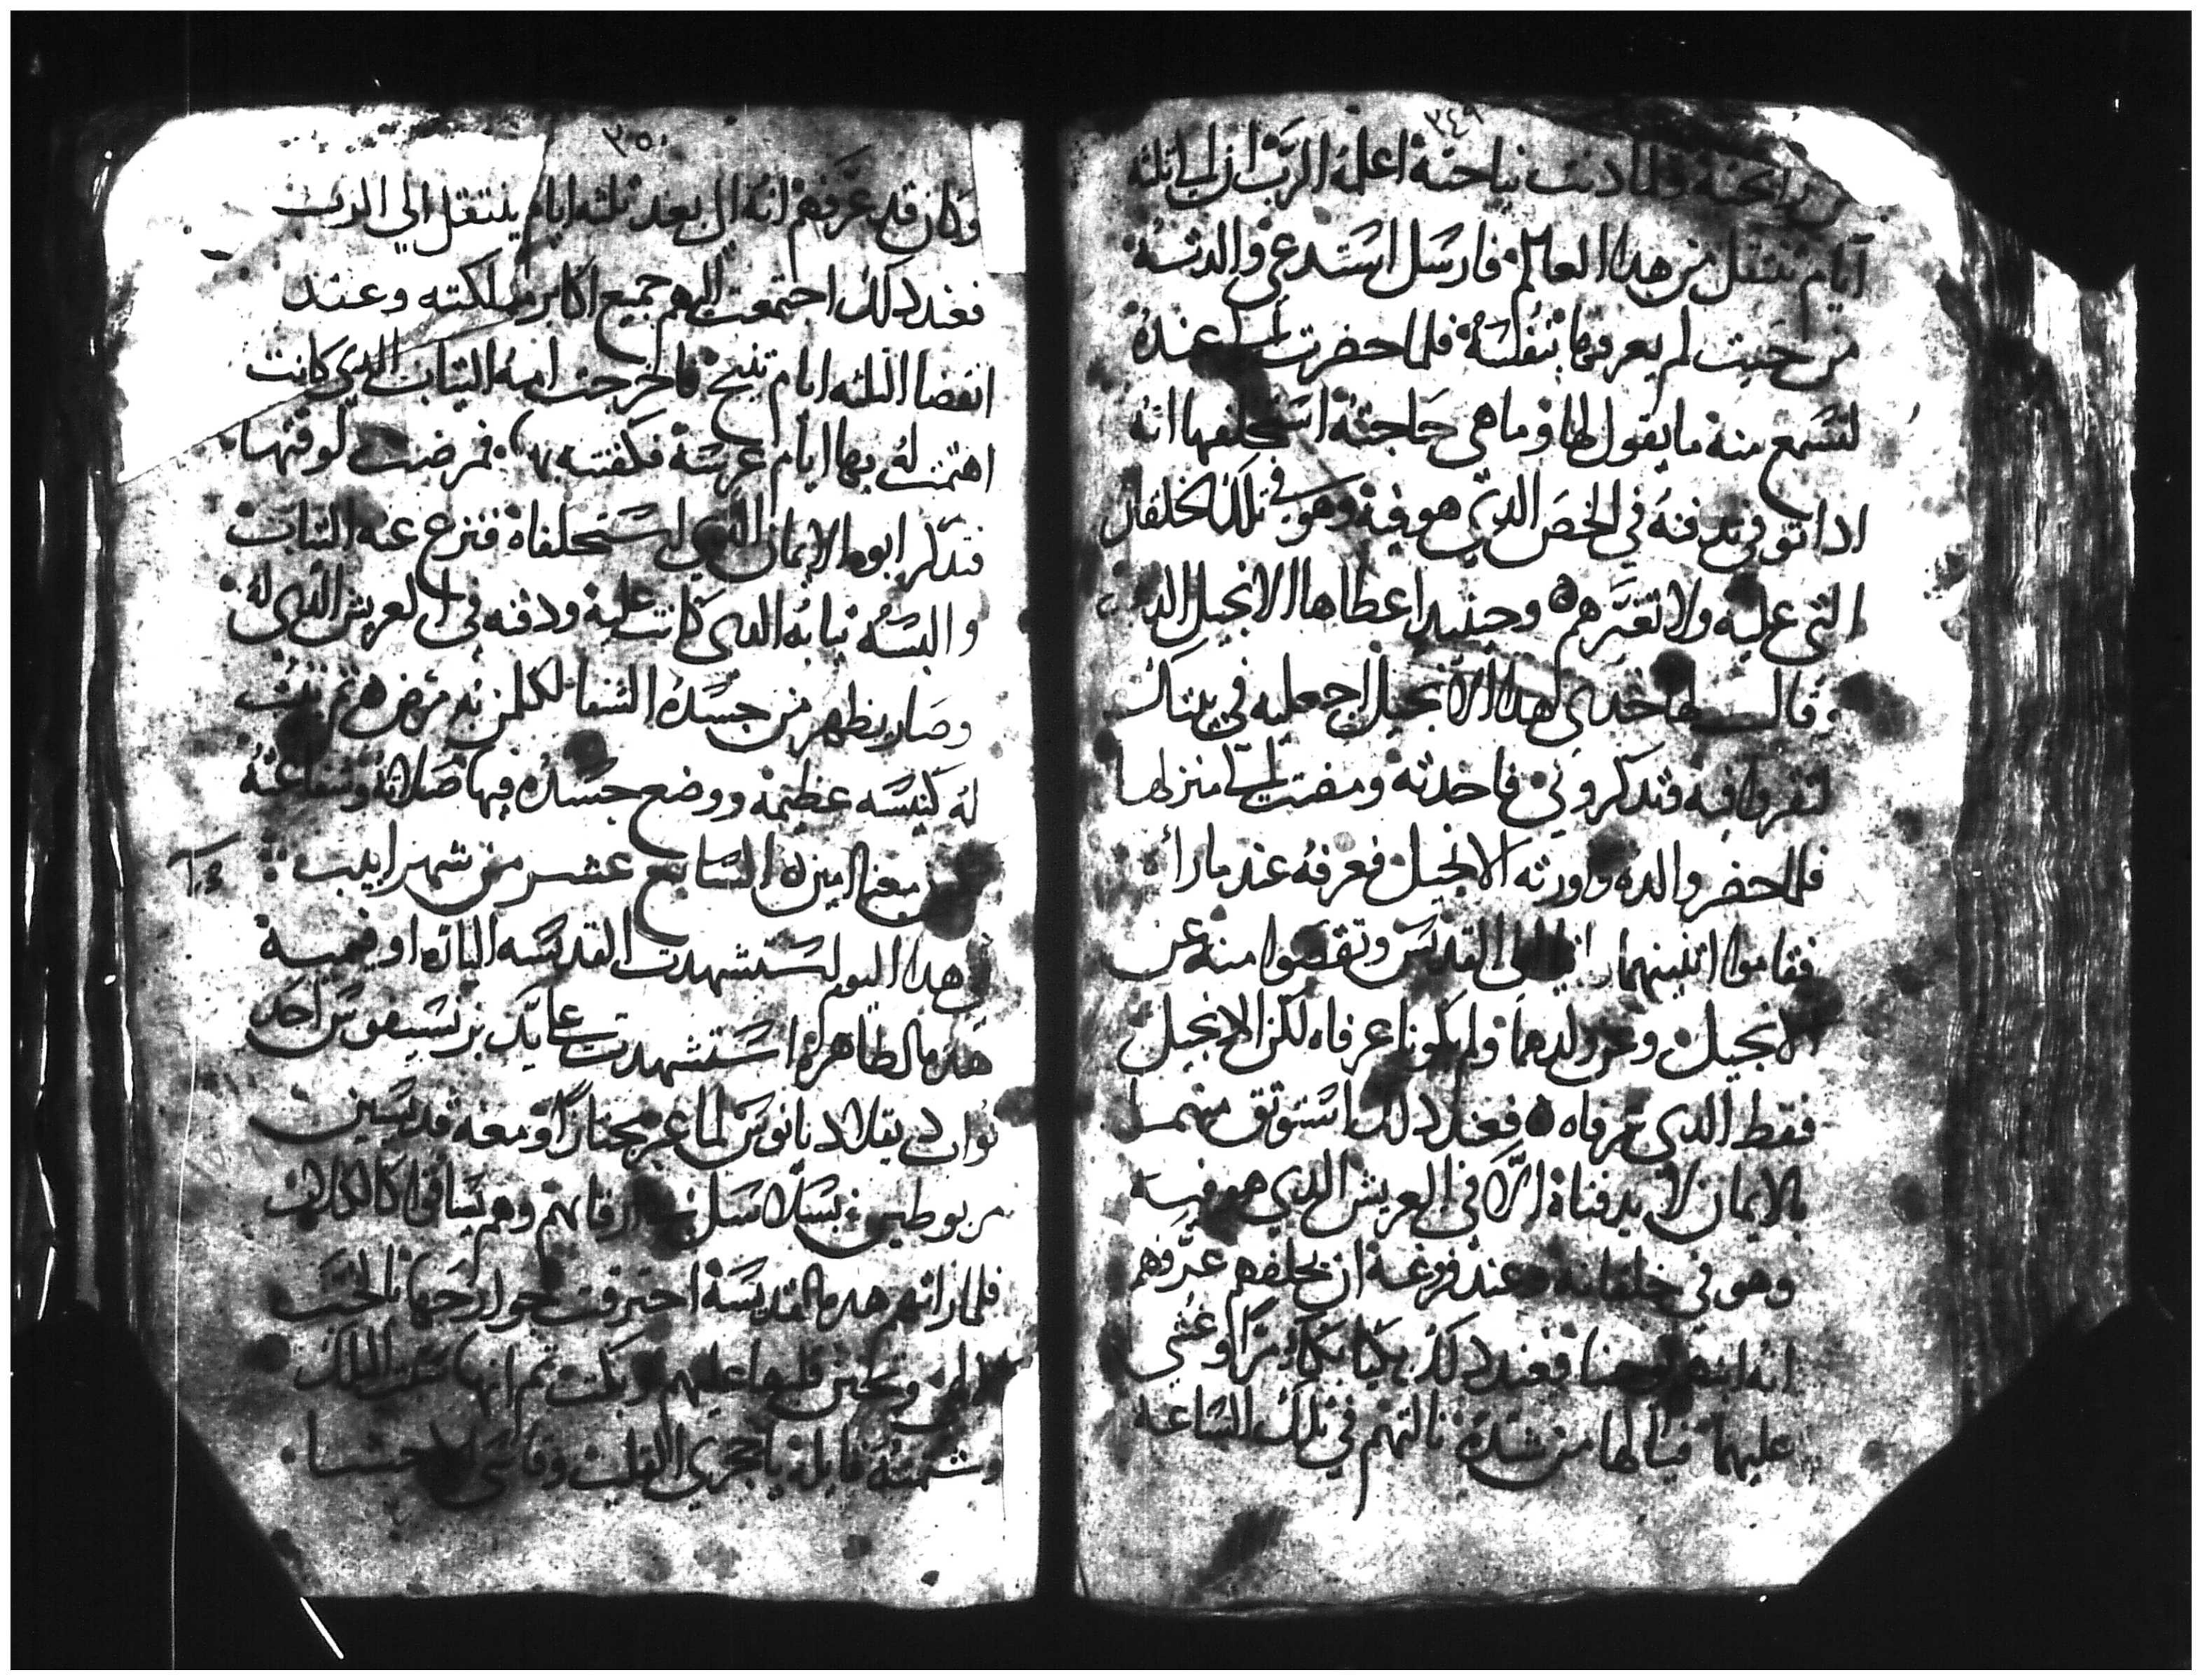 ٣٤٩
من رايحته ولما دنت نياحته اعلمه الرب ان الي ثلثه
ايام تنتقل من هدا العالم فارسل استدعى والدته
من حيت لم يعرفها بنفسه فلما حضرت الي عنده
لتسمع منه ما يقول لها وما هي حاجته استحلفها انه
ادا توفي تدفنه في الخص الدي هو فيه وهو في تلك الخلقان
التي عليه ولا تغيرهم وحينيد اعطاها الانجيل الدهب
وقالــــ لها خدي هدا الانجيل اجعليه في بيتك
لتقروا فيه وتدكروني فاخدته ومضت الي منزلها
فلما حضر والده واورته الانجيل فعرفه عند ما راه
فقاموا اتنينهما الي القديس وتقصوا منه عن
الانجيل وعن ولدهما ولم يكونا عرفاه لكن الانجيل
فقط الدي عرفاه فعند دلك استوتق منهما
بالايمان لا يدفناه الا في العريش الدي هو فيه
وهو في خلقانه وعند فرغه ان يحلفهم عرفهم
انه ابنهم يوحنا فعند دلك بكيا بكاء مرا وغشي
عليهما فيالها من شده نالتهم في تلك الساعه
٣٥٠
وكان قد عرفهم انه الي بعد تلته ايام ينتقل الي الرب
فعند دلك اجتمعت اليهم جميع اكابر مملكته وعند
انقضا التلته ايام تنيح فاخرجت امه التياب الدي كانت
اهتمت له بها ايام عرسه فكفنته بها فمرضت لوقتها
فتدكر ابوه الايمان الدي استحلفاه فنزع عنه التياب
والبسه تيابه الدي كانت عليه ودفنه في العريش الدي له
وصار يظهر من جسده الشفا لكلمن به مرض تم بنيت
له كنيسه عظيمه ووضع جسده فيها صلاته وشفاعته
معنا امين السابع عشر من شهر ابيب
في هدا اليوم استشهدت القديسه الباره اوفيميه
هده الطاهره استشهدت على يد بزنسيفوس احد
نواب ديقلاديانوس لما عبر مجتازا ومعه قديسين
مربوطين بسلاسل في ارقابهم وهم يساقوا كالكلاب
فلما راتهم هده القديسه احترقت جوارحها بالحب
الالهي وتحنن قلبها عليهم وبكت تم انها سبت الملك
وشتمته قايله يا حجري القلب وقاسي الاحشا